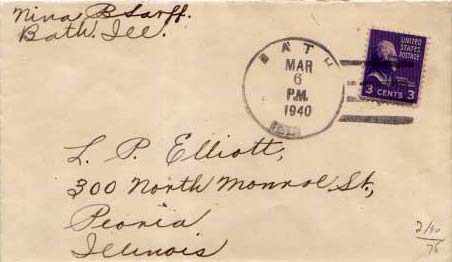 Nina B Sarff.
Bath. Ill.
BATH
MAR
6
P.M.
1940
ILL.
UNITED
STATES
POSTAGE
3 CENTS 3
L. P. Elliott,
300 North Monroe St.,
Peoria
Illinois
75